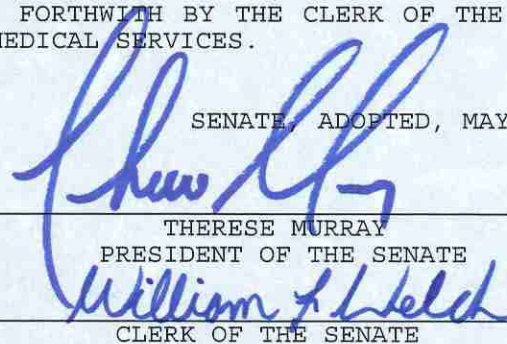 FORTHWITH BY THE CLERK OF THE
MEDICAL SERVICES.
SENATE, ADOPTED, MAY
THERESE MURRAY
PRESIDENT OF THE SENATE
William F Welch
CLERK OF THE SENATE